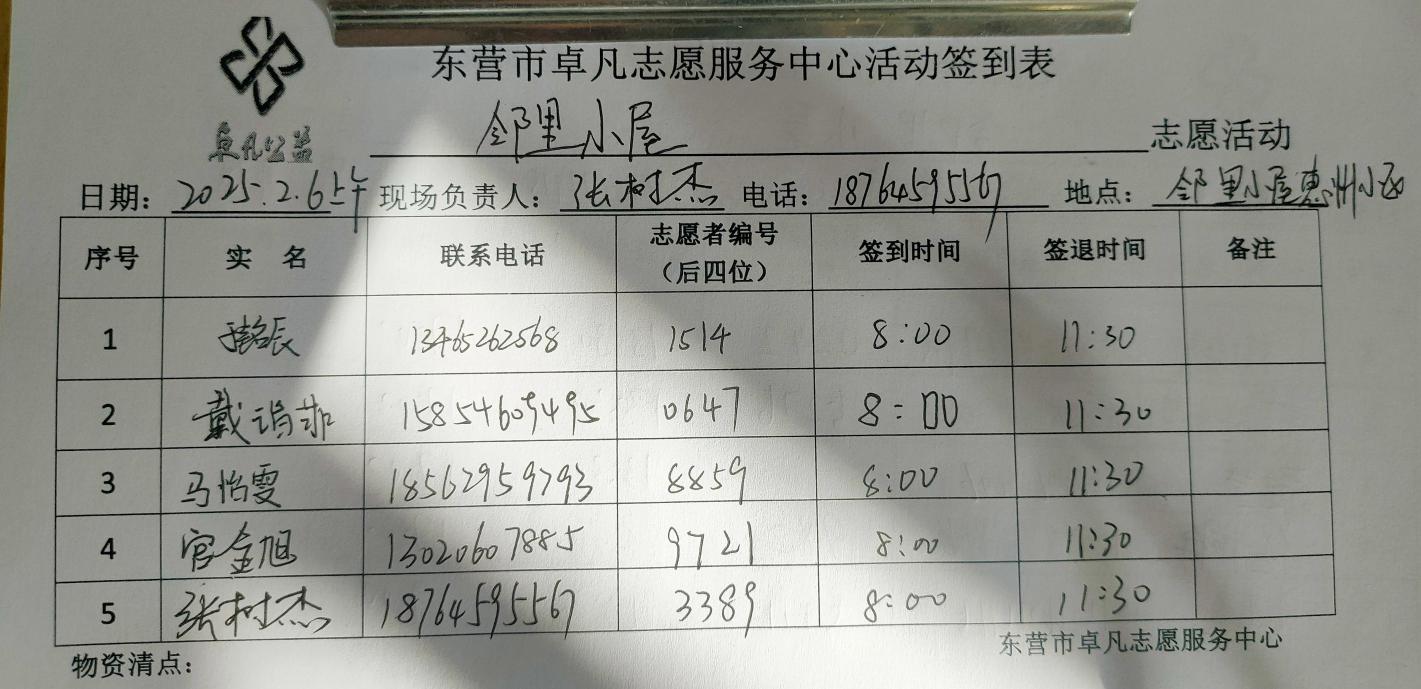 东营市卓凡志愿服务中心活动签到表
卓凡公益
邻里小屋 志愿活动
日期：2025.2.6上午 现场负责人：张树杰 电话：18764595567 地点：邻里小屋惠州小区
序号 实 名 联系电话 志愿者编号（后四位） 签到时间 签退时间 备注
1 辰 13465262568 1514 8:00 11:30
2 戴 15854609495 0647 8:00 11:30
3 马怡雯 18562959793 8859 8:00 11:30
4 官金旭 13020607885 9721 8:00 11:30
5 张树杰 18764595567 3389 8:00 11:30
东营市卓凡志愿服务中心
物资清点：